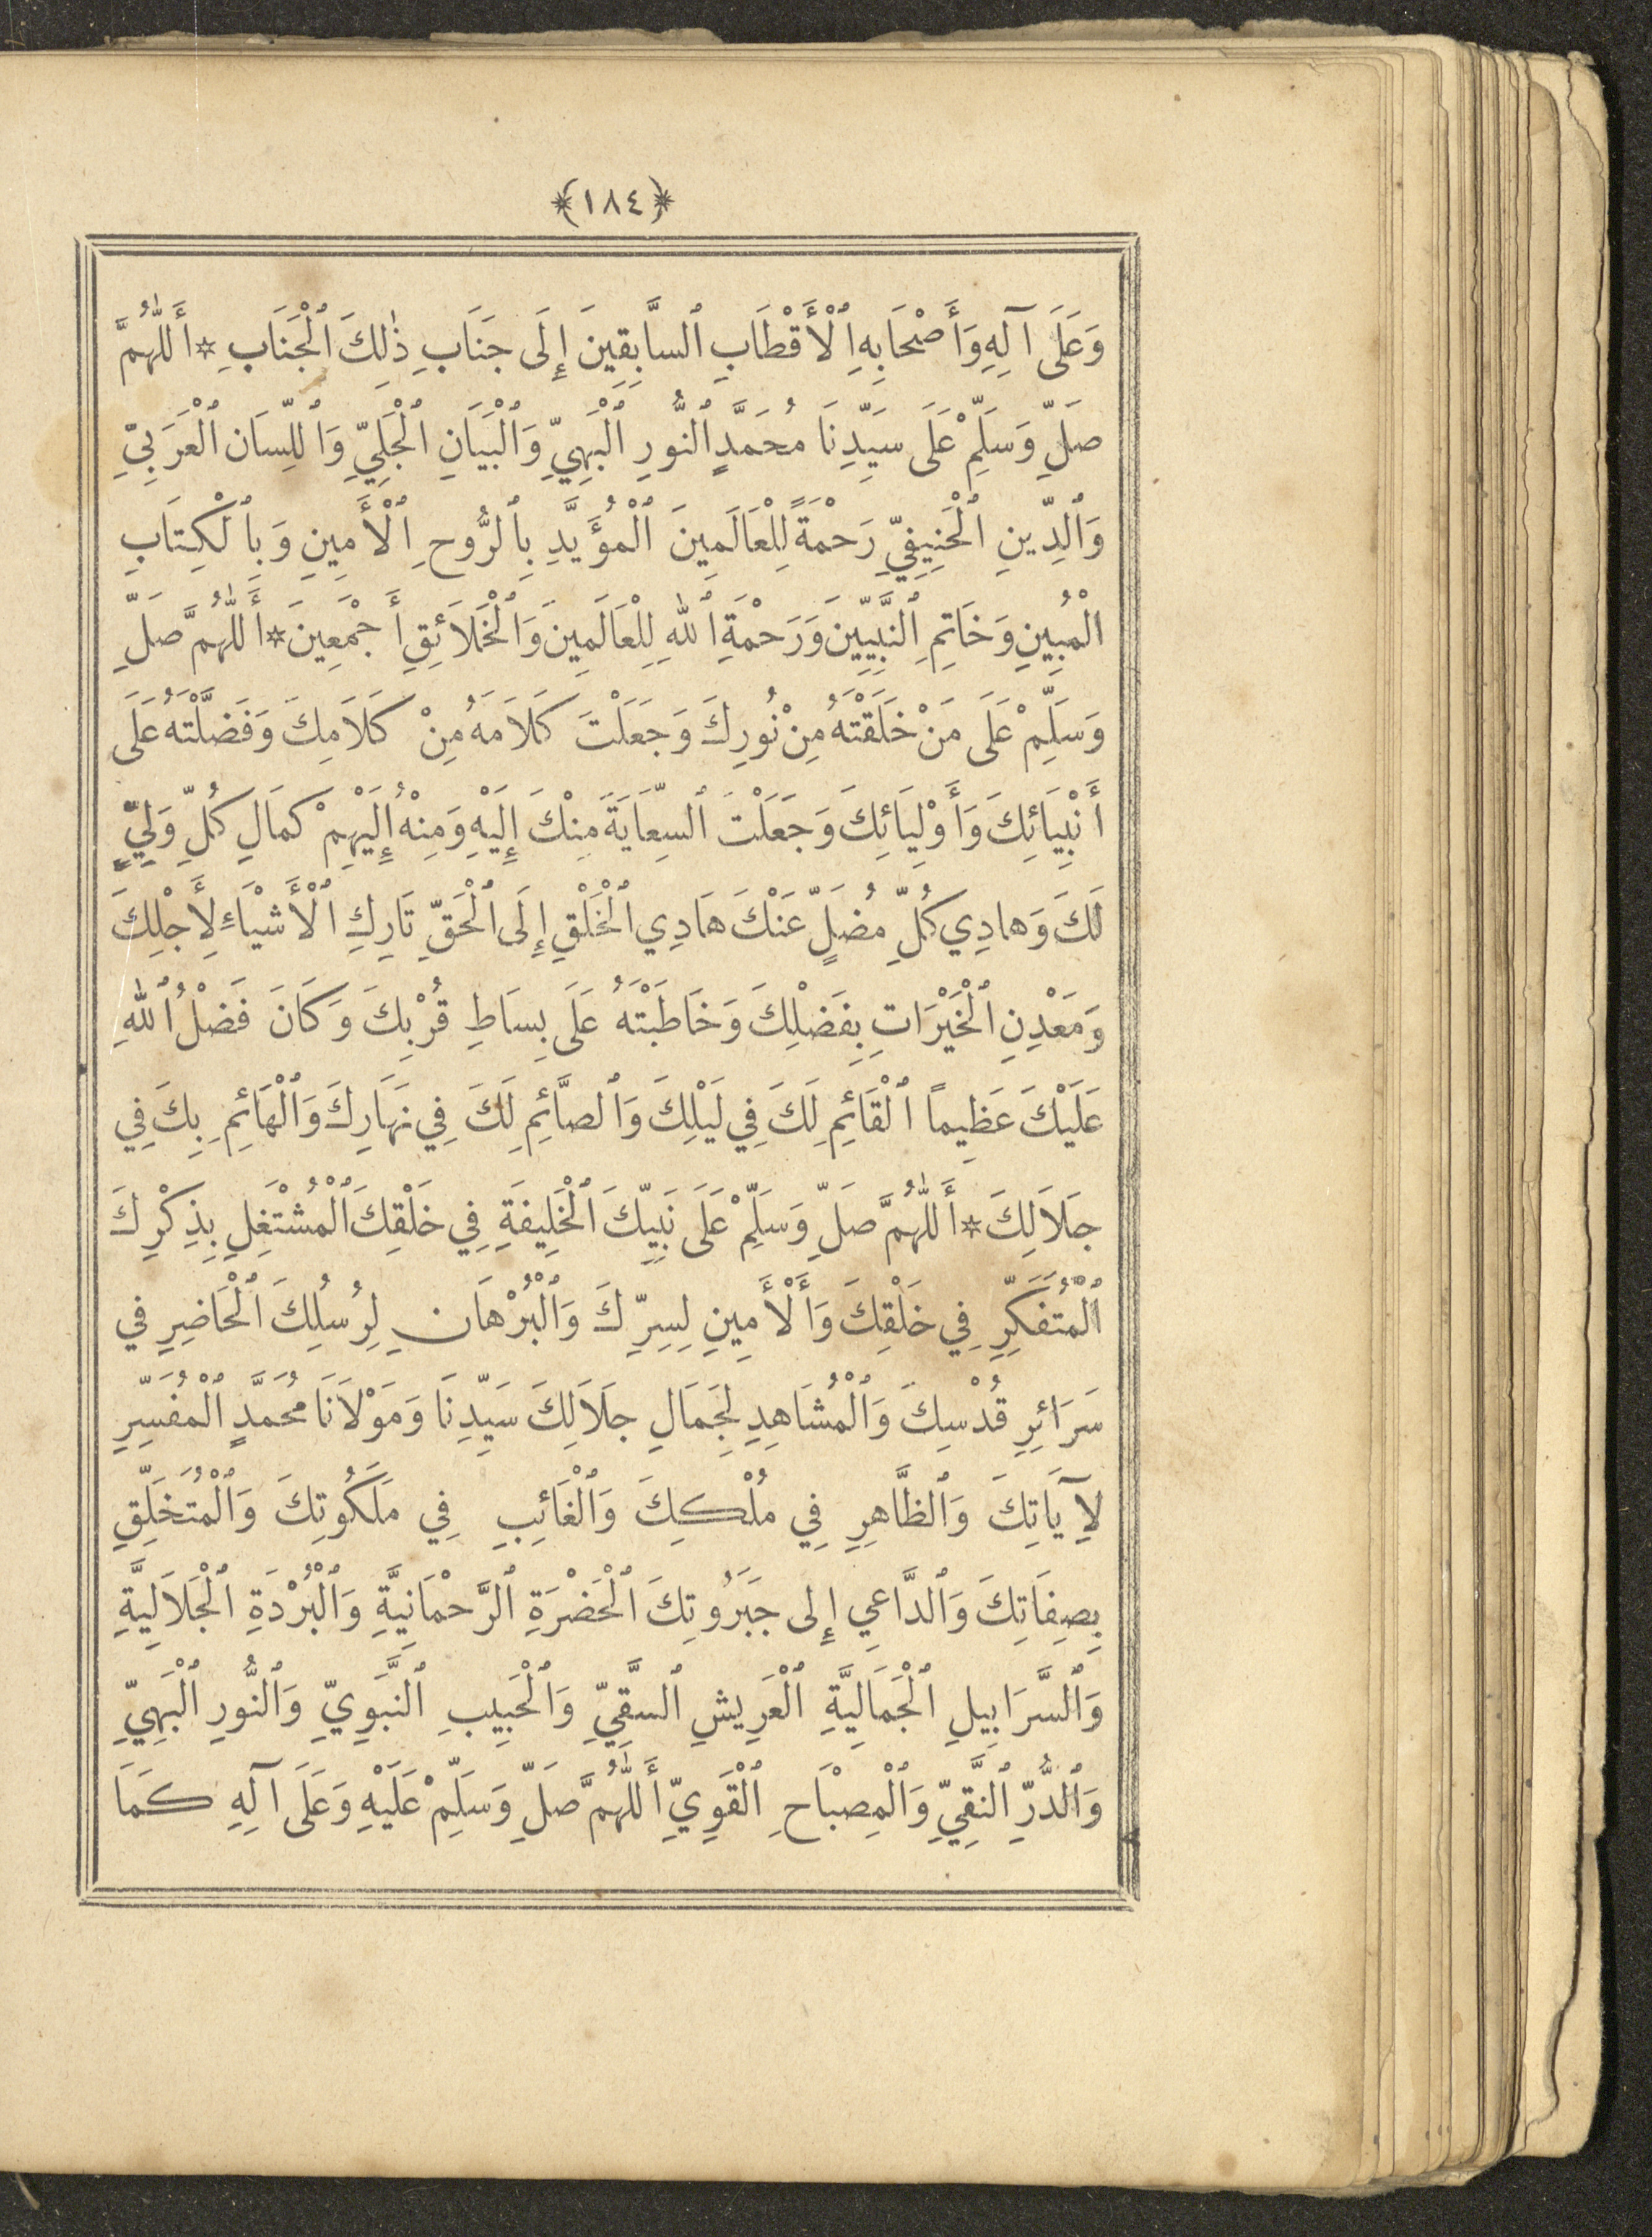 ﴿١٨٤﴾
وَعَلَى آلِهِ وَأَصْحَابِهِ ٱلْأَقْطَابِ ٱلسَّابِقِينَ إِلَى جَنَابِ ذٰلِكَ ٱلْجَنَابِ * أَللّٰهُمَّ
صَلِّ وَسَلِّمْ عَلَى سَيِّدِنَا مُحَمَّدٍ ٱلنُّورِ ٱلْبَهِيِّ وَٱلْبَيَانِ ٱلْجَلِيِّ وَٱللِّسَانِ ٱلْعَرَبِيِّ
وَٱلدِّينِ ٱلْحَنِيفِيِّ رَحْمَةً لِلْعَالَمِينَ ٱلْمُؤَيَّدِ بِٱلرُّوحِ ٱلْأَمِينِ وَبِٱلْكِتَابِ
ٱلْمُبِينِ وَخَاتِمِ ٱلنَّبِيِّينَ وَرَحْمَةِ ٱللهِ لِلْعَالَمِينَ وَٱلْخَلَائِقِ أَجْمَعِينَ * أَللّٰهُمَّ صَلِّ
وَسَلِّمْ عَلَى مَنْ خَلَقْتَهُ مِنْ نُورِكَ وَجَعَلْتَ كَلَامَهُ مِنْ كَلَامِكَ وَفَضَّلْتَهُ عَلَى
أَنْبِيَائِكَ وَأَوْلِيَائِكَ وَجَعَلْتَ ٱلسِّعَايَةَ مِنْكَ إِلَيْهِ وَمِنْهُ إِلَيْهِمْ كَمَالِ كُلِّ وَلِيٍّ
لَكَ وَهَادِي كُلِّ مُضَلٍّ عَنْكَ هَادِي ٱلْخَلْقِ إِلَى ٱلْحَقِّ تَارِكِ ٱلْأَشْيَاءِ لِأَجْلِكَ
وَمَعْدِنِ ٱلْخَيْرَاتِ بِفَضْلِكَ وَخَاطَبْتَهُ عَلَى بِسَاطِ قُرْبِكَ وَكَانَ فَضْلُ ٱللهِ
عَلَيْكَ عَظِيماً ٱلْقَائِمِ لَكَ فِي لَيْلِكَ وَٱلصَّائِمِ لَكَ فِي نَهَارِكَ وَٱلْهَائِمِ بِكَ فِي
جَلَالِكَ * أَللّٰهُمَّ صَلِّ وَسَلِّمْ عَلَى نَبِيِّكَ ٱلْخَلِيفَةِ فِي خَلْقِكَ ٱلْمُشْتَغِلِ بِذِكْرِكَ
ٱلْمُتَفَكِّرِ فِي خَلْقِكَ وَٱلْأَمِينِ لِسِرِّكَ وَٱلْبُرْهَانِ لِرُسُلِكَ ٱلْحَاضِرِ فِي
سَرَائِرِ قُدْسِكَ وَٱلْمُشَاهِدِ لِجَمَالِ جَلَالِكَ سَيِّدِنَا وَمَوْلَانَا مُحَمَّدٍ ٱلْمُفَسِّرِ
لِآيَاتِكَ وَٱلظَّاهِرِ فِي مُلْكِكَ وَٱلْغَائِبِ فِي مَلَكُوتِكَ وَٱلْمُتَخَلِّقِ
بِصِفَاتِكَ وَٱلدَّاعِي إِلَى جَبَرُوتِكَ ٱلْحَضْرَةِ ٱلرَّحْمَانِيَّةِ وَٱلْبُرْدَةِ ٱلْجَلَالِيَّةِ
وَٱلسَّرَابِيلِ ٱلْجَمَالِيَّةِ ٱلْعَرِيشِ ٱلسَّقِيِّ وَٱلْحَبِيبِ ٱلنَّبَوِيِّ وَٱلنُّورِ ٱلْبَهِيِّ
وَٱلدُّرِّ ٱلنَّقِيِّ وَٱلْمِصْبَاحِ ٱلْقَوِيِّ أَللّٰهُمَّ صَلِّ وَسَلِّمْ عَلَيْهِ وَعَلَى آلِهِ كَمَا